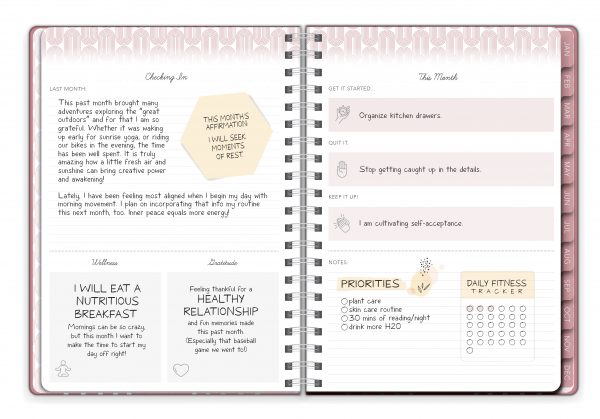 Checking In
LAST MONTH:
This past month brought many
adventures exploring the "great
outdoors" and for that I am so
grateful. Whether it was waking
up early for sunrise yoga, or riding
our bikes in the evening, the time
has been well spent. It is truly
amazing how a little fresh air and
sunshine can bring creative power
and awakening!
Lately, I have been feeling most aligned when I begin my day with
morning movement. I plan on incorporating that into my routine
this next month, too. Inner peace equals more energy!
THIS MONTH'S
AFFIRMATION:
I WILL SEEK
MOMENTS
OF REST.
Wellness
I WILL EAT A
NUTRITIOUS
BREAKFAST
Mornings can be so crazy,
but this month I want to
make the time to start my
day off right!
Gratitude
Feeling thankful for a
HEALTHY
RELATIONSHIP
and fun memories made
this past month.
(Especially that baseball
game we went to!)
This Month
GET IT STARTED:
Organize kitchen drawers.
QUIT IT:
Stop getting caught up in the details.
KEEP IT UP!
I am cultivating self-acceptance.
NOTES:
PRIORITIES
plant care
skin care routine
30 mins of reading/night
drink more H20
DAILY FITNESS
TRACKER
JAN
FEB
MAR
APR
MAY
JUN
JUL
AUG
SEP
OCT
NOV
DEC